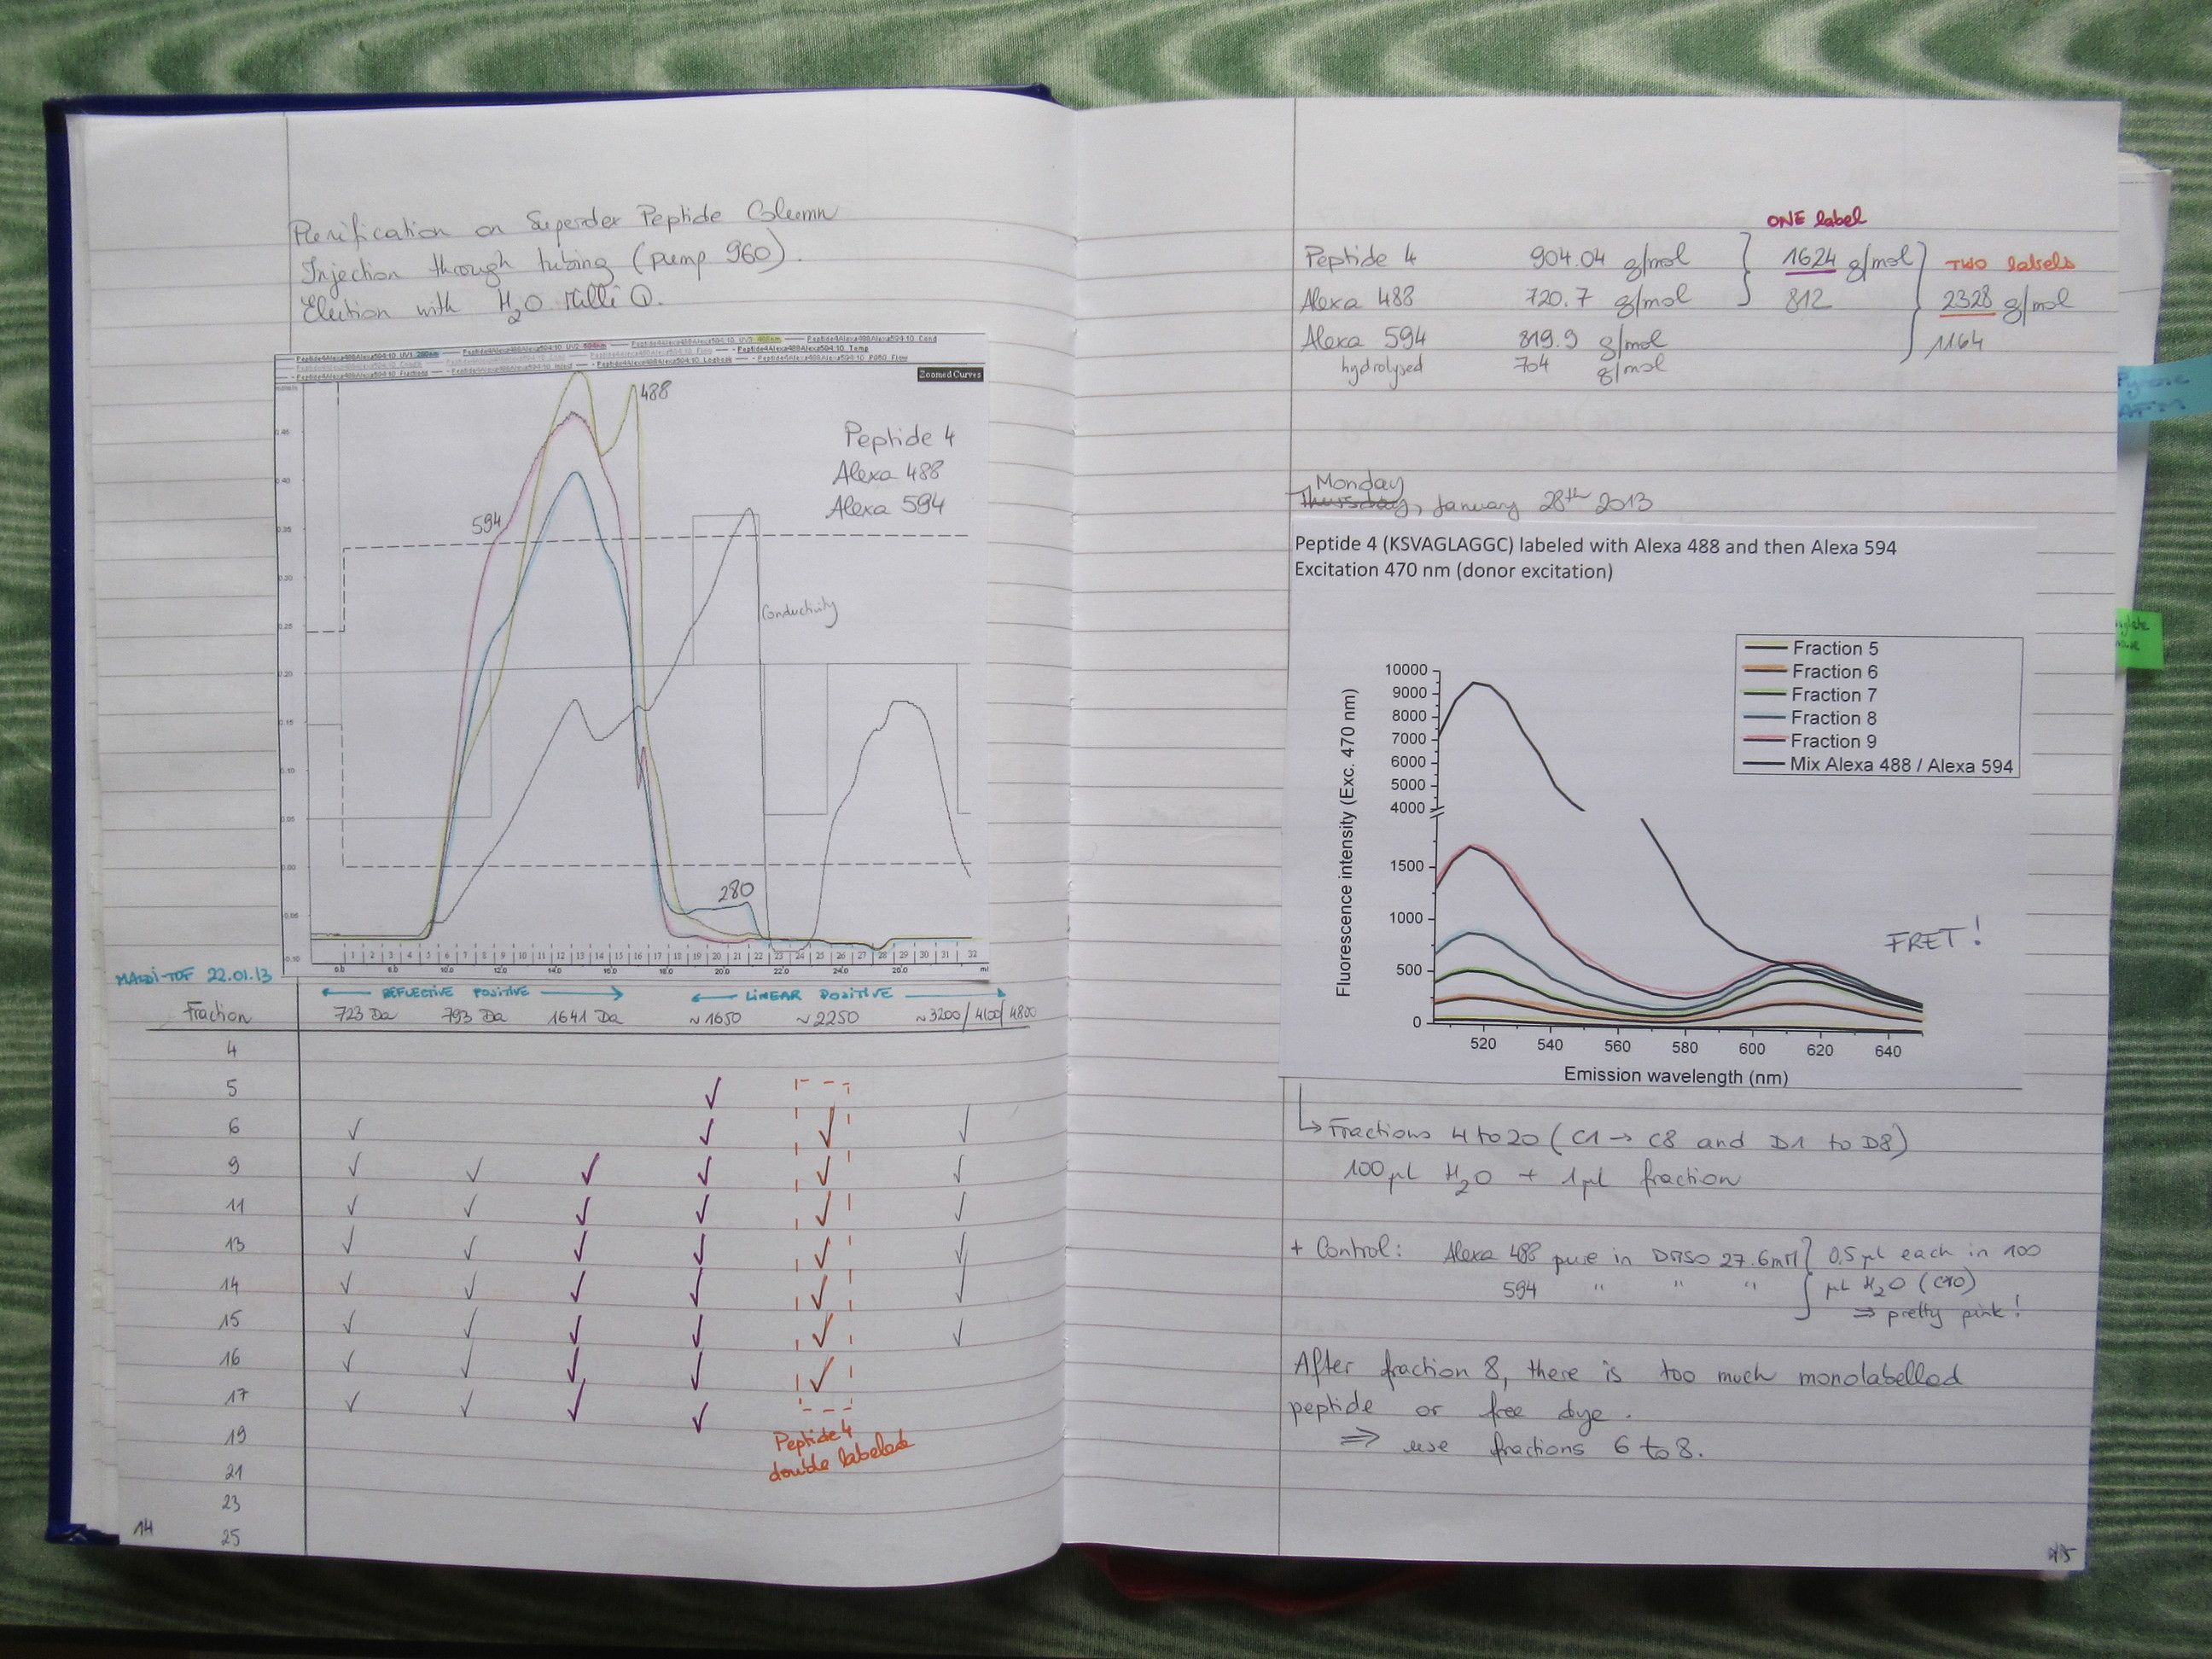 Purification on Superdex Peptide Column
Injection through tubing (pump 960).
Elution with H2O Milli Q.
Zoomed Curves
488
594
Peptide 4
Alexa 488
Alexa 594
Conductivity
280
1 2 3 4 5 6 7 8 9 10 11 12 13 14 15 16 17 18 19 20 21 22 23 24 25 26 27 28 29 30 31 32
MALDI-TOF 22.01.13
REFLECTIVE POSITIVE
LINEAR POSITIVE
Fraction 723 Da 793 Da 1641 Da ~1650 ~2250 ~3200/4100/4800
4
5 ✓
6 ✓ ✓ ✓ ✓
9 ✓ ✓ ✓ ✓ ✓ ✓
11 ✓ ✓ ✓ ✓ ✓ ✓
13 ✓ ✓ ✓ ✓ ✓ ✓
14 ✓ ✓ ✓ ✓ ✓ ✓
15 ✓ ✓ ✓ ✓ ✓ ✓
16 ✓ ✓ ✓ ✓ ✓
17 ✓ ✓ ✓ ✓
19
21
23
25
Peptide 4
double labeled
14
ONE label
Peptide 4 904.04 g/mol } 1624 g/mol } TWO labels
Alexa 488 720.7 g/mol 812 2328 g/mol
Alexa 594 819.9 g/mol 1164
hydrolysed 704 g/mol
Monday
Thursday, January 28th 2013
Peptide 4 (KSVAGLAGGC) labeled with Alexa 488 and then Alexa 594
Excitation 470 nm (donor excitation)
Fraction 5
Fraction 6
Fraction 7
Fraction 8
Fraction 9
Mix Alexa 488 / Alexa 594
Fluorescence intensity (Exc. 470 nm)
10000
9000
8000
7000
6000
5000
4000
1500
1000
500
0
FRET!
520 540 560 580 600 620 640
Emission wavelength (nm)
↳ Fractions 4 to 20 (C1 → C8 and D1 to D8)
100 µL H2O + 1 µL fraction
+ Control: Alexa 488 pure in DMSO 27.6mM } 0.5 µL each in 100
594 " " " µL H2O
⇒ pretty pink!
After fraction 8, there is too much monolabelled
peptide or free dye.
⇒ use fractions 6 to 8.